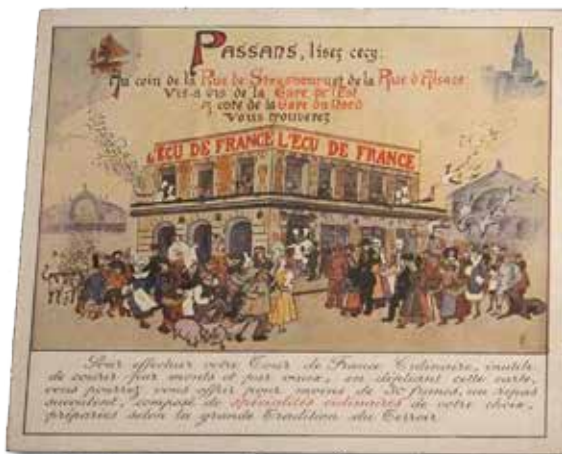 Passans, lisez cecy:
Au coin de la Rue de Strasbourg et de la Rue d'Alsace
Vis-a vis de la Gare de l'Est
A coté de la Gare du Nord
Vous trouverez
L'ECU DE FRANCE L'ECU DE FRANCE
Pour effectuer votre Tour de France Culinaire, inutile
de courir par monts et par vaux, en dépliant cette carte,
vous pourrez vous offrir pour moins de 30 francs, un repas
succulent, composé de spécialités culinaires de votre choix,
préparées selon la grande Tradition du Terroir